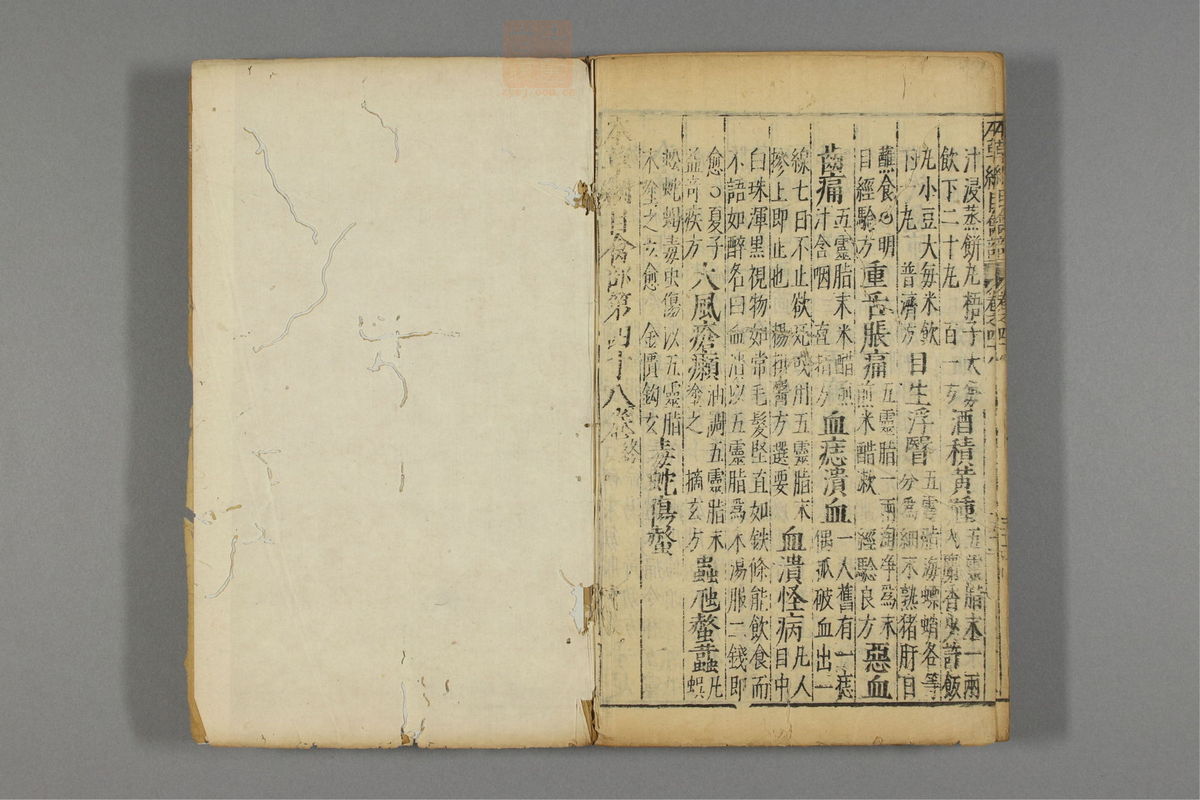 汁浸蒸餅丸梧子大每
飲下二十丸 百一方
酒積黃腫
五靈脂末一兩
入麝香少許飯
丸小豆大每米飲
下一丸 普濟方
目生浮瞖
五靈脂海螵蛸各等
分爲細末熟猪肝日
蘸食○明
目經驗方
重舌脹痛
五靈脂一兩淘净爲末
煎米醋漱 經驗良方
惡血
齒痛
五靈脂末米醋煎
汁含咽 直指方
血痣潰血
一人舊有一痣
偶抓破血出一
線七日不止欲死或用五靈脂末
摻上即止也 楊拱醫方選要
血潰怪病
凡人
目中
白珠渾黑視物如常毛髮堅直如铁條能飲食而
不語如醉名曰血潰以五靈脂爲末湯服二錢即
愈○夏子
益奇疾方
大風瘡癩
油調五靈脂末
塗之 摘玄方
蟲虺螫蠚
凡
蜈
蚣蛇蝎毒虫傷以五靈脂
末塗之立愈 金匱鈎玄
毒蛇傷螫
本草綱目禽部第四十八卷終